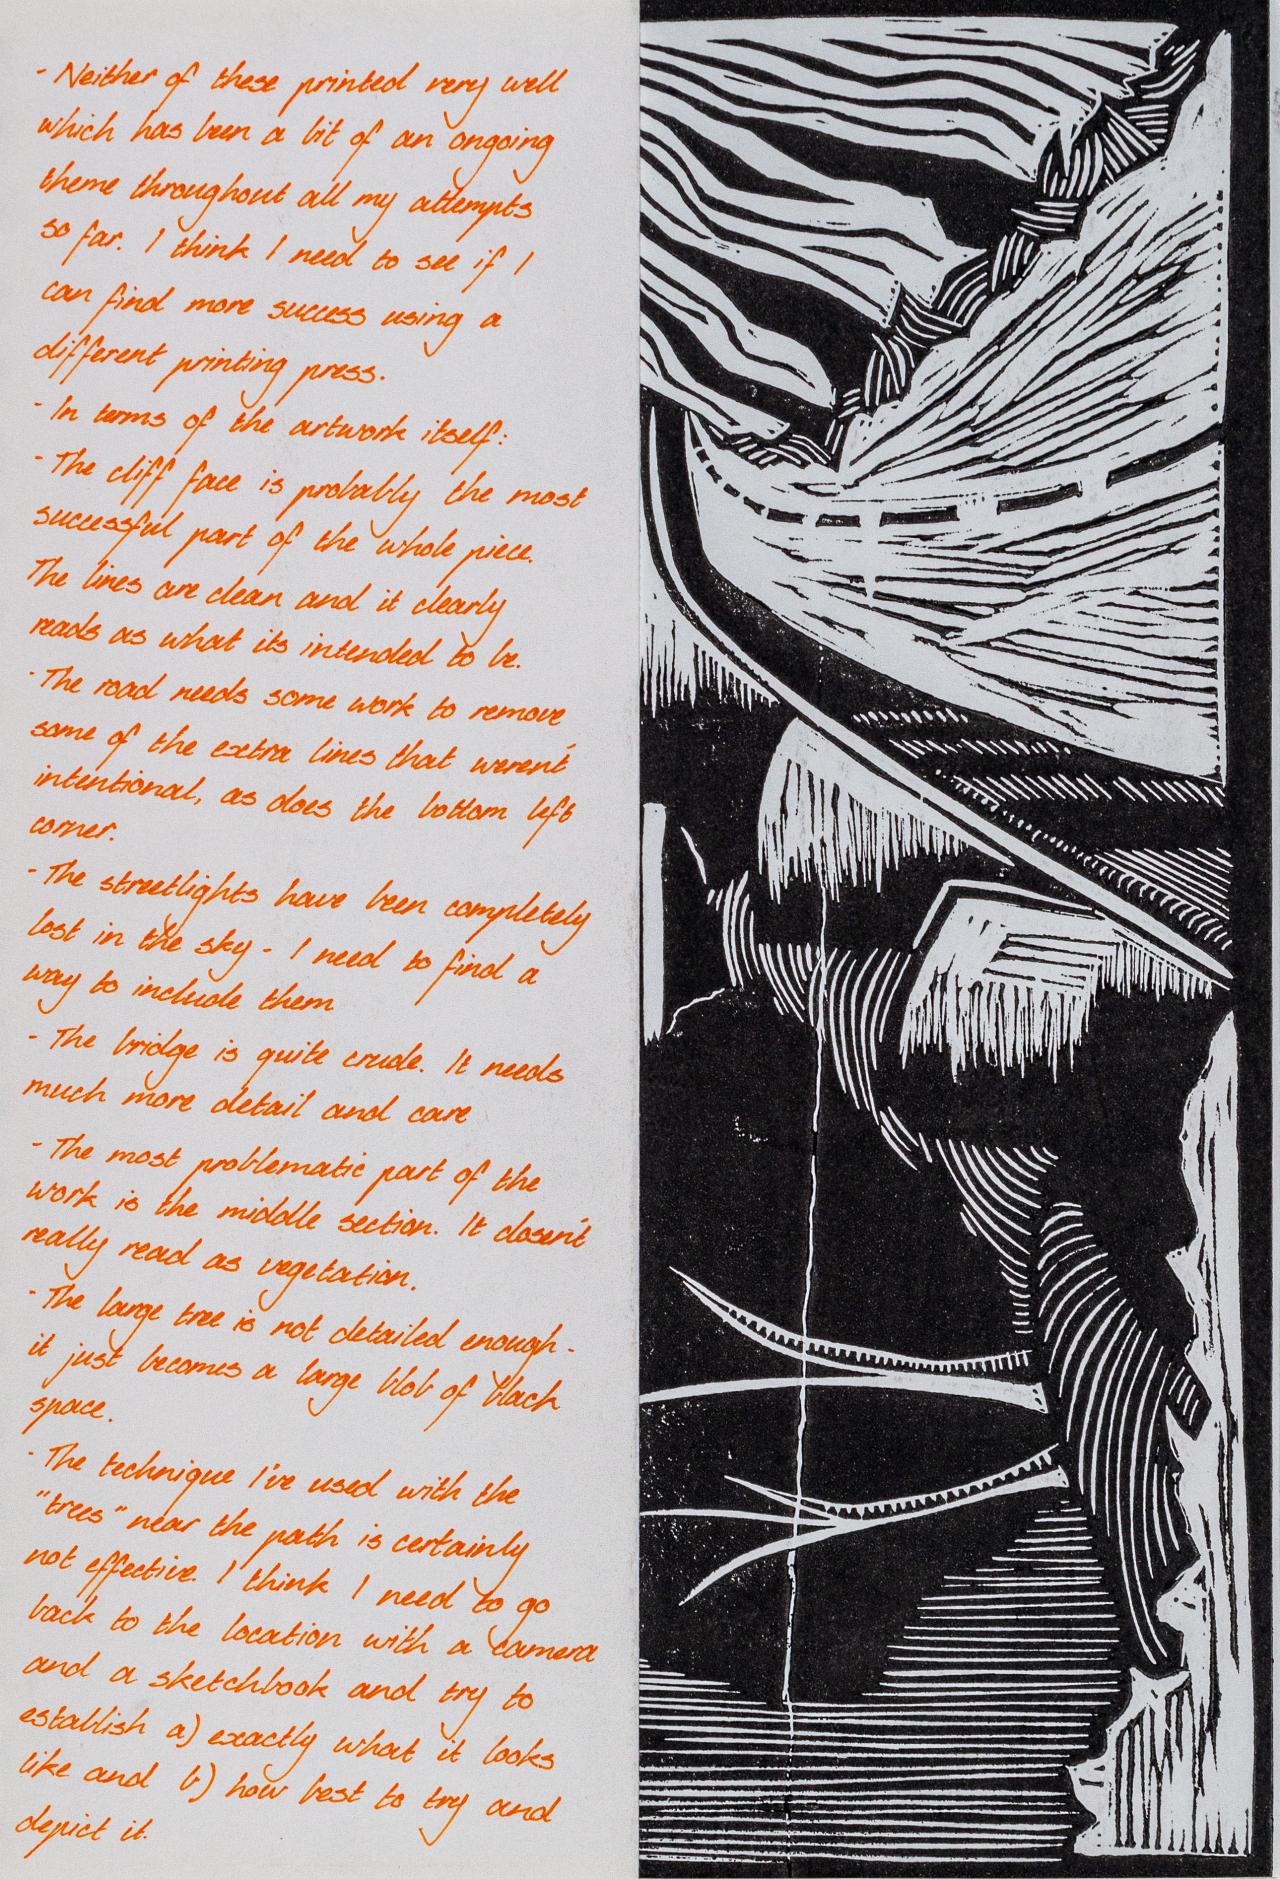 - Neither of these printed very well
which has been a bit of an ongoing
theme throughout all my attempts
so far. I think I need to see if I
can find more success using a
different printing press.
- In terms of the artwork itself:
- The cliff face is probably the most
successful part of the whole piece.
The lines are clean and it clearly
reads as what its intended to be.
- The road needs some work to remove
some of the extra lines that weren't
intentional, as does the bottom left
corner.
- The streetlights have been completely
lost in the sky - I need to find a
way to include them
- The bridge is quite crude. It needs
much more detail and care
- The most problematic part of the
work is the middle section. It dosen't
really read as vegetation.
- The large tree is not detailed enough -
it just becomes a large blob of black
space.
- The technique I've used with the
"trees" near the path is certainly
not effective. I think I need to go
back to the location with a camera
and a sketchbook and try to
establish a) exactly what it looks
like and b) how best to try and
depict it.